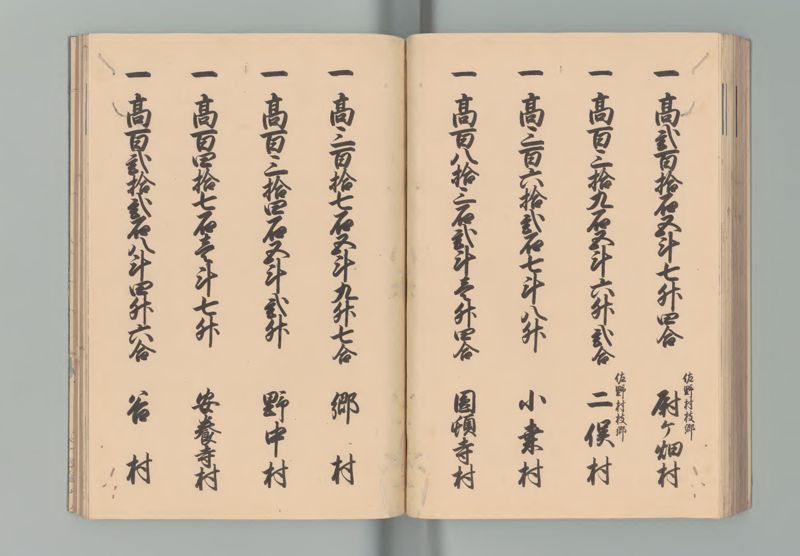 一高弐百拾石五斗七升四合 佐野村枝郷 尉ヶ畑村
一高百三拾九石五斗六升弐合 佐野村枝郷 二俣村
一高三百六拾弐石七斗八升 小桑村
一高百八拾三石弐斗壱升四合 円頓寺村
一高三百拾七石五斗九升七合 郷村
一高百三拾四石五斗弐升 野中村
一高百四拾七石壱斗七升 安養寺村
一高百弐拾弐石八斗四升六合 谷村